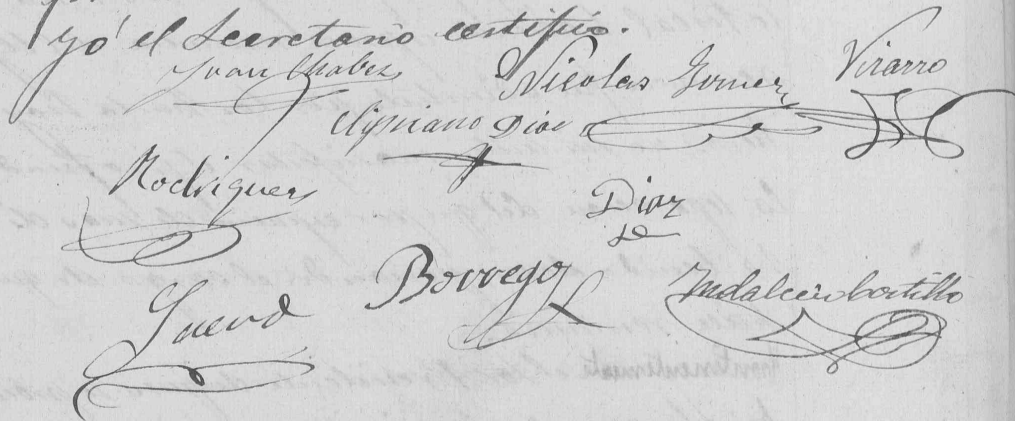 yó el Secretario certifico.
Juan Chabes Nicolas Gomez Vizarro
Cipriano Dias
Rodriguez Diaz
Borrego
Indalecio Cortillo